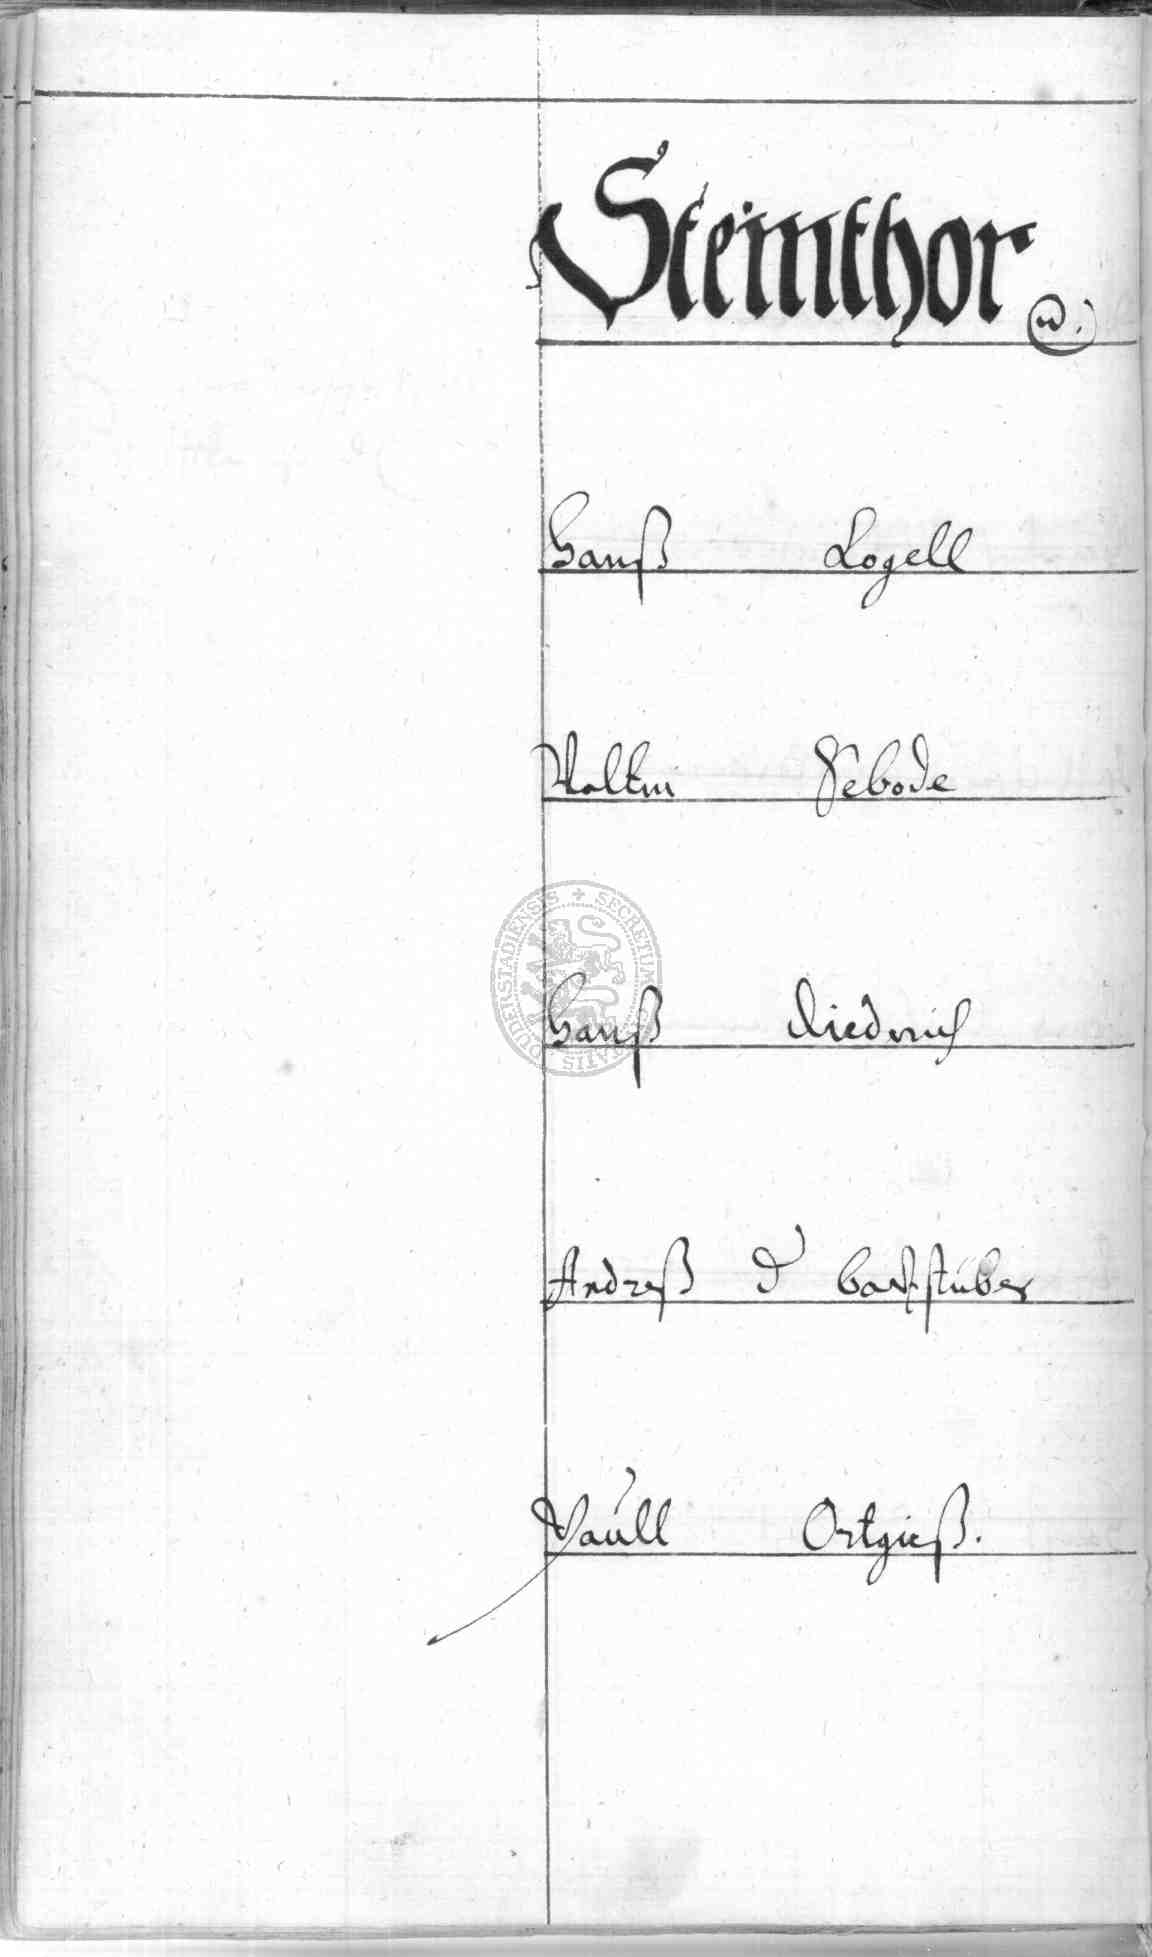 Steinthor
Hanß Logell
Valtin Sebode
Hanß Diederich
Andreß d backstüber
Paull Ortgieß.
SECRETUM DUDERSTADIENSIS